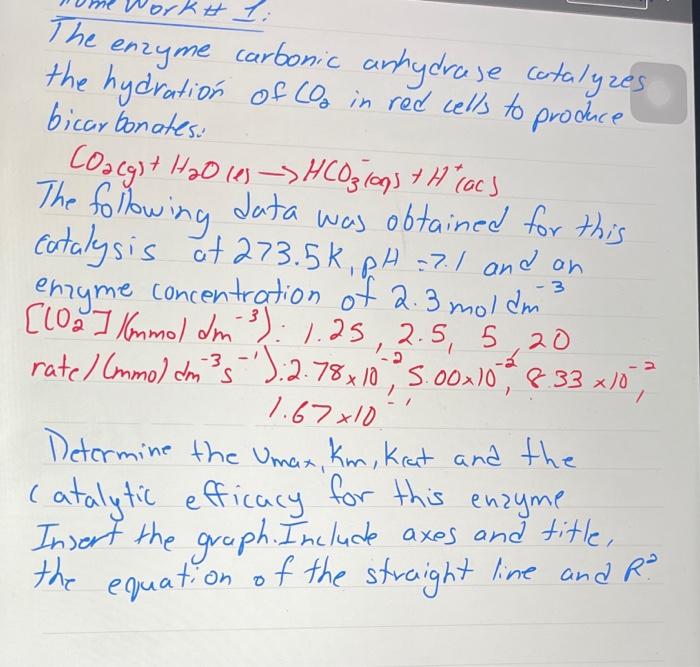 Home Work # 1:
The enzyme carbonic anhydrase catalyzes
the hydration of CO₂ in red cells to produce
bicarbonates:
CO₂(g) + H₂O(l) → HCO₃⁻(aq) + H⁺(ac)
The following data was obtained for this
catalysis at 273.5K, pH = 7.1 and an
enzyme concentration of 2.3 mol dm⁻³
[CO₂]/(mmol dm⁻³): 1.25, 2.5, 5, 20
rate/(mmol dm⁻³s⁻¹): 2.78x10⁻², 5.00x10⁻², 8.33x10⁻²,
1.67x10⁻¹
Determine the Vmax, Km, Kcat and the
catalytic efficacy for this enzyme
Insert the graph. Include axes and title,
the equation of the straight line and R².